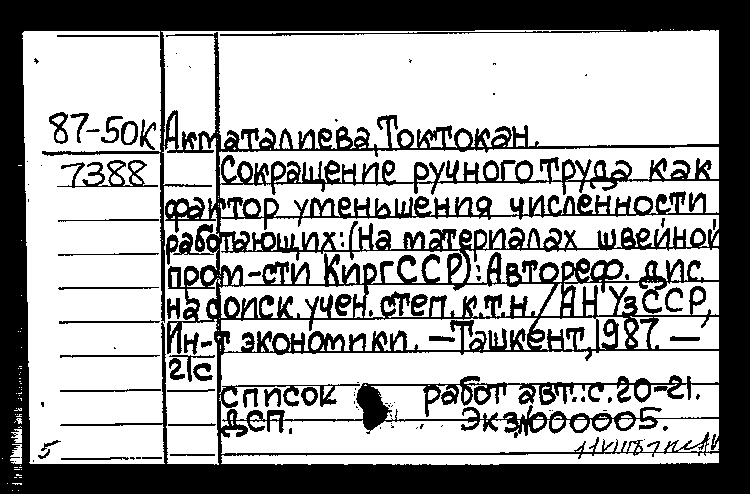 87-50К Акматалиева, Токтокан.
7388 Сокращение ручного труда как
фактор уменьшения численности
работающих: (На материалах швейной
пром-сти КиргССР): Автореф. дис.
на соиск. учен. степ. к.т.н. / АН УзССР,
Ин-т экономики. — Ташкент, 1987. —
21с
список работ авт.: с. 20-21.
ДСП. Экз№000005.
5